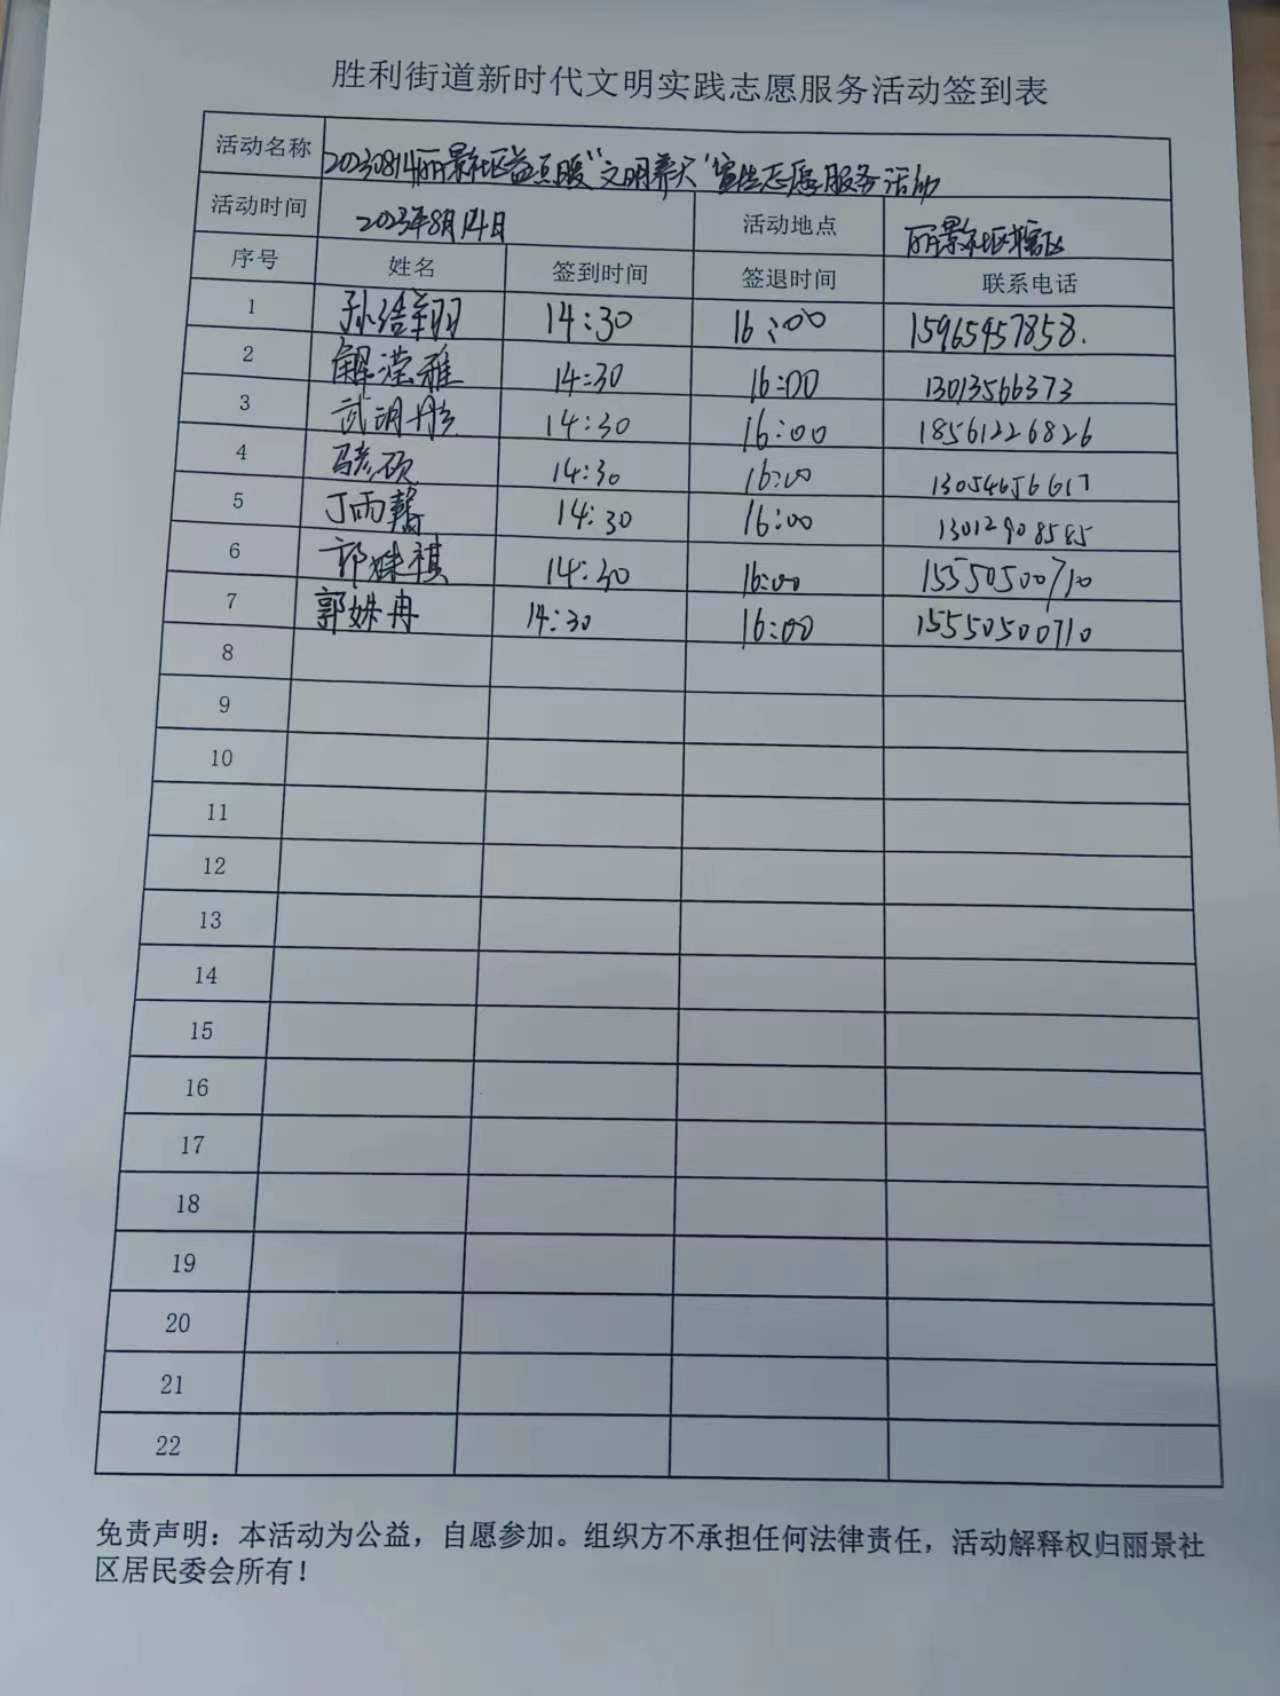 胜利街道新时代文明实践志愿服务活动签到表
活动名称 20230814丽景社区益点暖“文明养犬”宣传志愿服务活动
活动时间 2023年8月14日 活动地点 丽景社区辖区
序号 姓名 签到时间 签退时间 联系电话
1 孙浩翔 14:30 16:00 15965457858.
2 解滢雅 14:30 16:00 13013566373
3 武玥彤 14:30 16:00 18561226826
4 14:30 16:00 13054656617
5 丁雨馨 14:30 16:00 13012908585
6 郭姝祺 14:30 16:00 15550500710
7 郭姝冉 14:30 16:00 15550500710
8
9
10
11
12
13
14
15
16
17
18
19
20
21
22
免责声明：本活动为公益，自愿参加。组织方不承担任何法律责任，活动解释权归丽景社
区居民委会所有！